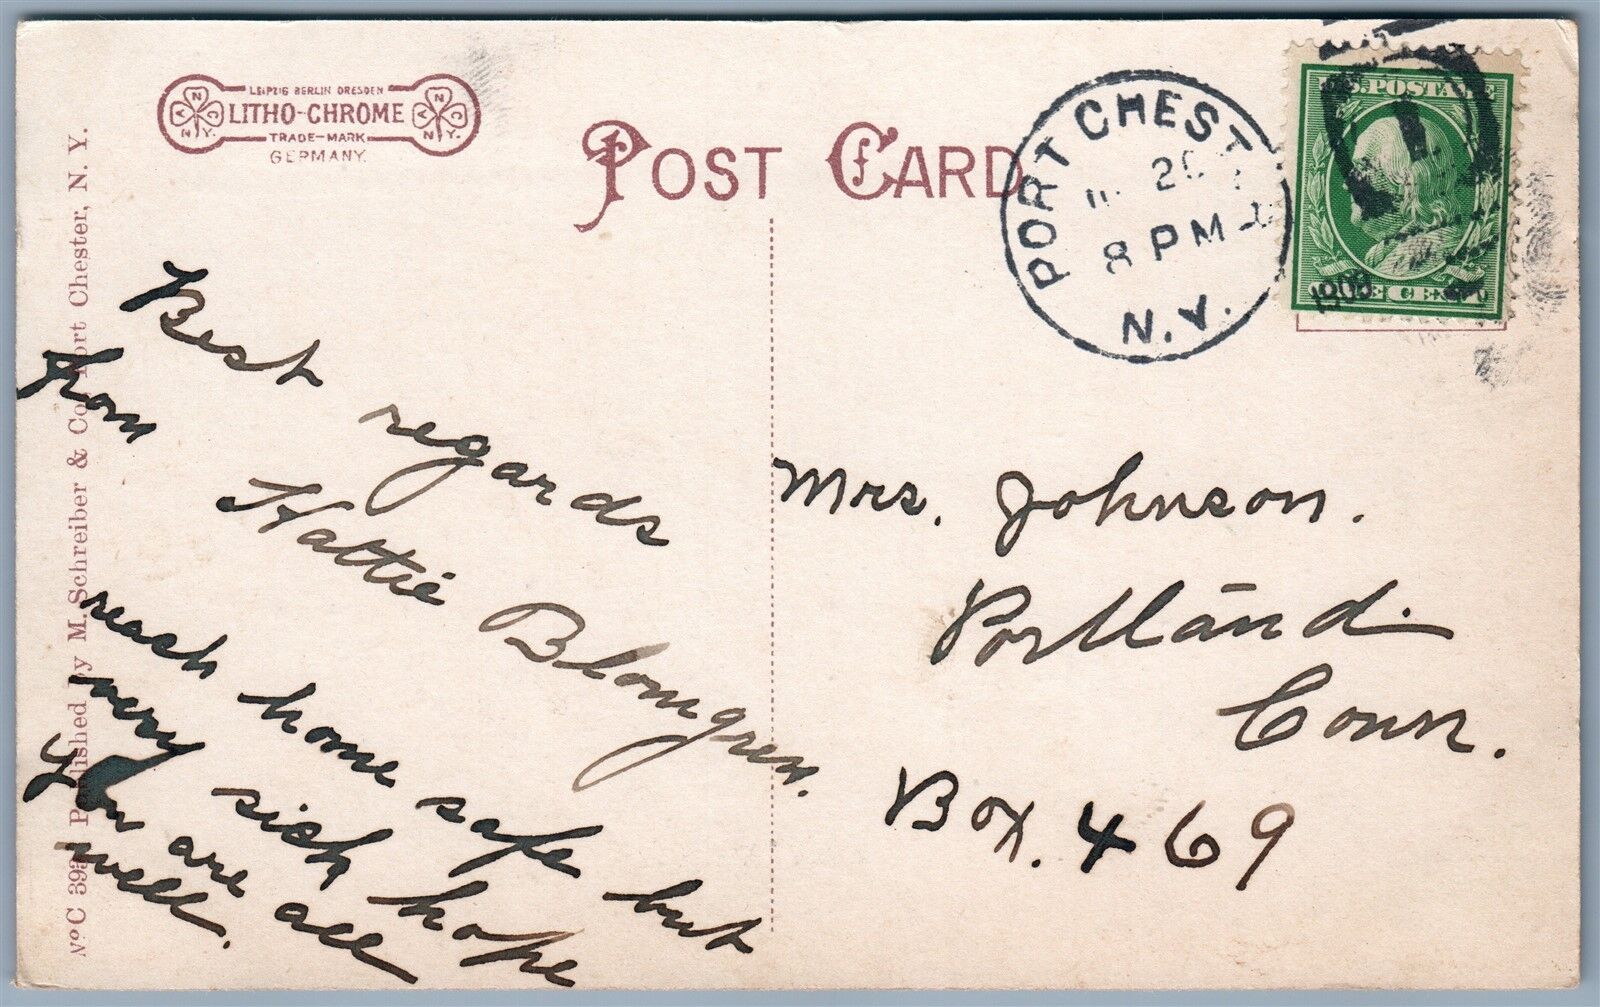 LEIPZIG BERLIN DRESDEN
LITHO-CHROME
TRADE-MARK
GERMANY.
POST CARD
PORT CHEST
20
8 PM
N.Y.
U.S. POSTAGE
1909
Nº C 393 Published by M. Schreiber & Co. Port Chester, N. Y.
Best regards
from
Hattie Blomgren.
reach home safe but
very sick hope
you are all
well.
Mrs. Johnson.
Portland.
Conn.
Box. 469